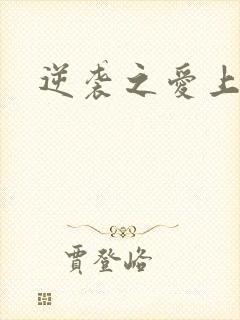 逆袭之爱上
賈登峪